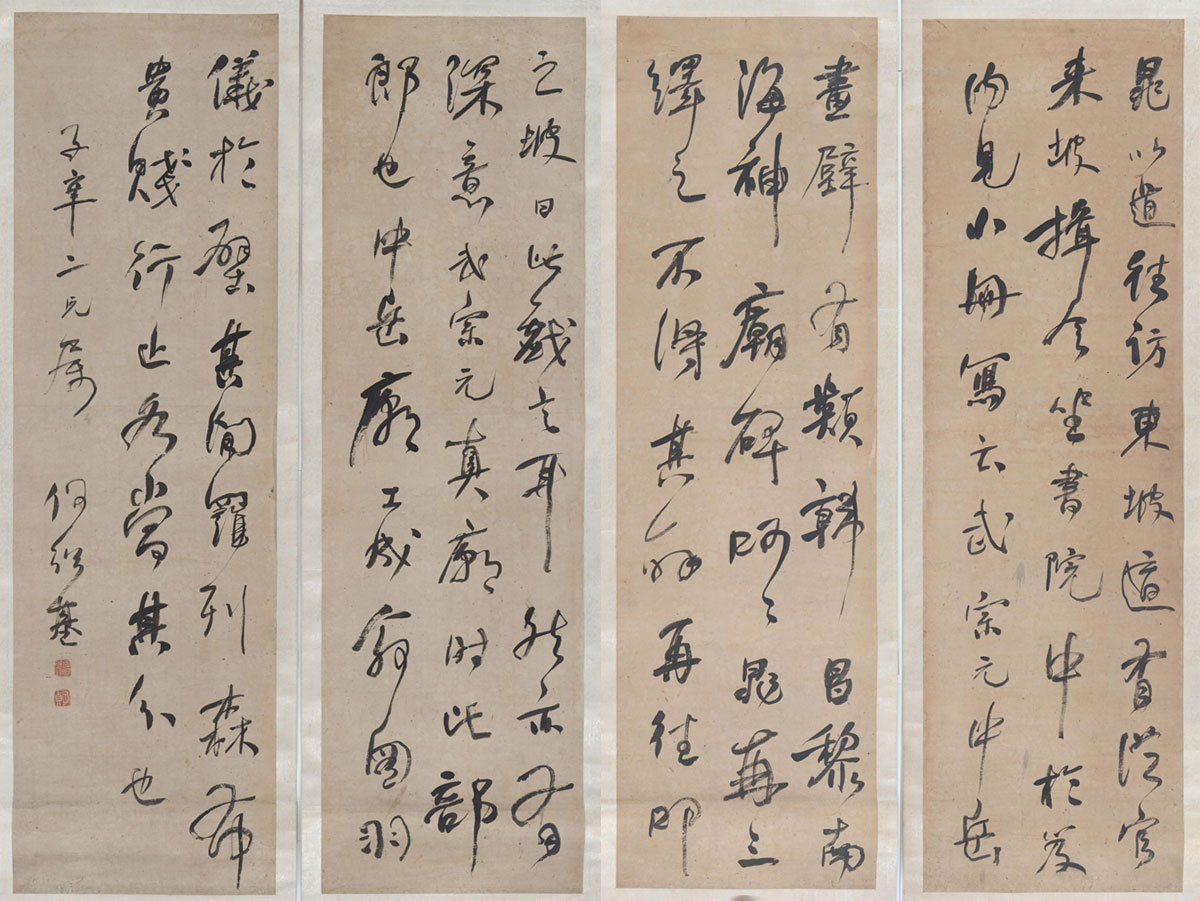 晁以道往訪東坡適有從官
来坡揖令坐書院中於
内見小冊寫云武宗元中岳
畫壁有類韓昌黎南
海神廟碑呵〻晁再三
繹之不得其解再往叩
之坡曰此戲言耳然亦有
深意武宗元真廟時比部
郎也中岳廟工成翁圖羽
儀於壁其間羅列森布
貴賤行止各當其分也
子辛二兄屬 何紹基